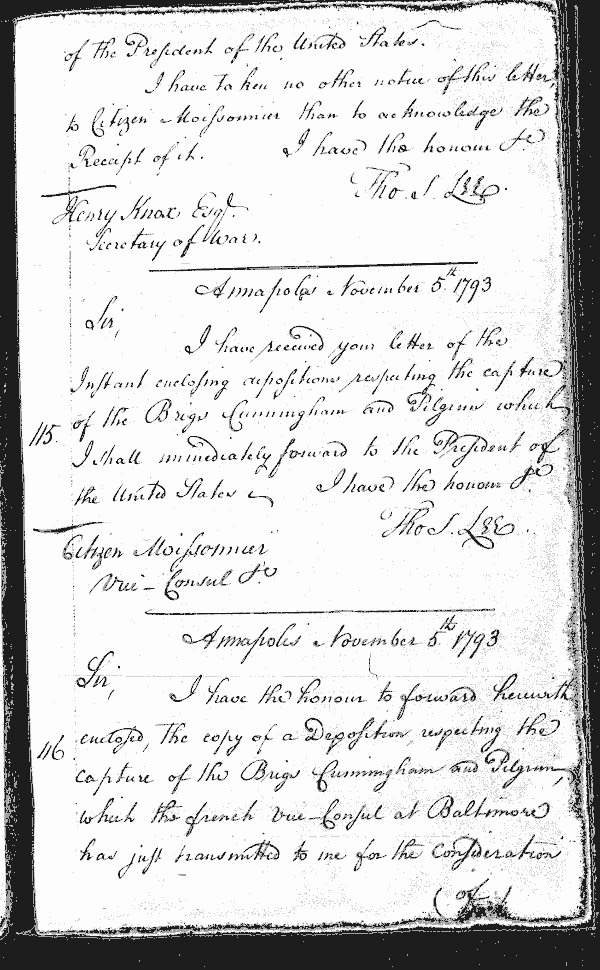 of the President of the United States.
I have taken no other notice of this letter,
to Citizen Moissonnier than to acknowledge the
Receipt of it. I have the honour &c
Tho. S. Lee.
Henry Knox Esqr.
Secretary of War.
Annapolis November 5th. 1793
Sir,
I have received your letter of the
Instant enclosing depositions respecting the capture
of the Brigs Cunningham and Pilgrim which
115.
I shall immediately forward to the President of
the United States I have the honour &c
Tho S. Lee.
Citizen Moissonnier
Vice-Consul &c
Annapolis November 5th. 1793
Sir,
I have the honour to forward herewith
enclosed, the copy of a Deposition, respecting the
116
capture of the Brigs Cunningham and Pilgrim,
which the french Vice-Consul at Baltimore
has just transmitted to me for the Consideration
(of)